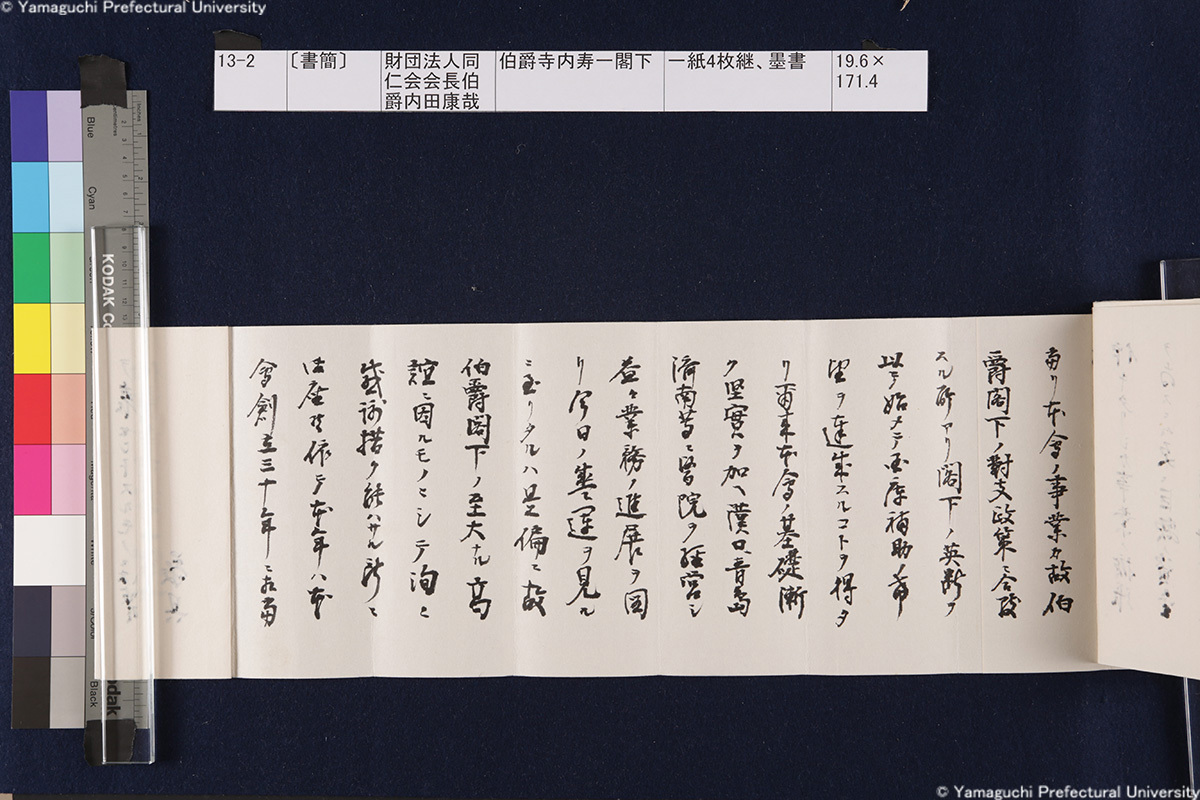 © Yamaguchi Prefectural University
13-2
〔書簡〕
財団法人同
仁会会長伯
爵内田康哉
伯爵寺内寿一閣下
一紙4枚継、墨書
19.6×
171.4
Blue
Cyan
KODAK
Black
リ本會ノ事業カ故伯
爵閣下ノ對支政策ニ合致
スル所アリ閣下ノ英断ヲ
以テ始メテ国庫補助ノ希
望ヲ達成スルコトヲ得タ
リ爾来本會ノ基礎漸
ク堅実ヲ加ヘ漢口青島
済南等ニ医院ヲ経営シ
益々業務ノ進展ヲ図
リ今日ノ盛運ヲ見ル
ニ至リタルハ是偏ニ故
伯爵閣下ノ至大ナル高
誼ニ因ルモノニシテ洵ニ
感謝措ク能ハサル所ニ
御座候依テ本年ハ本
會創立三十年ニ相当
© Yamaguchi Prefectural University